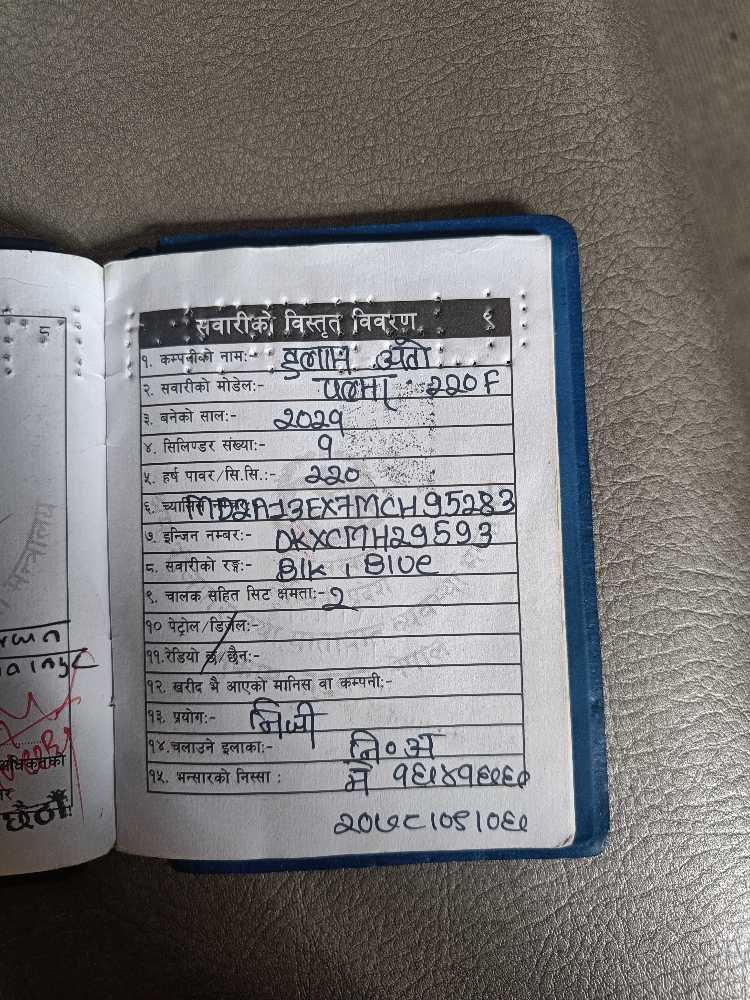 ५
सवारीको विस्तृत विवरण ९
१. कम्पनीको नाम:- अतो
२. सवारीको मोडेल:- पल्सर 220F
३. बनेको साल:- 2021
४. सिलिण्डर संख्या:- १
५. हर्ष पावर/सि.सि.:- 220
६. च्यासिस नम्बर:- MD2A13EX7MCH95283
७. इन्जिन नम्बर:- DKXCMH29593
८. सवारीको रङ्ग:- Blk । Blue
९. चालक सहित सिट क्षमता:- २
१० पेट्रोल/डिजेल:-
११.रेडियो छ/छैन:-
१२. खरीद भै आएको मानिस वा कम्पनी:-
१३. प्रयोग:- निजी
१४.चलाउने इलाका:- नि०अं
१५. भन्सारको निस्सा :
२०७८।०९।०६